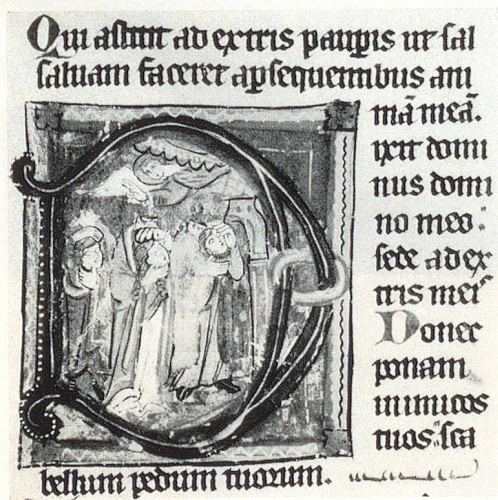 Qui astitit ad extris paup̲is ut sal
saluam faceret a p̲sequentibus ani
mā meā.
Dixit domi
nus domi
no meo:
sede ad ex
tris meis
Donec
ponam
inimicos
tuos: sca
bellum pedum tuorum.